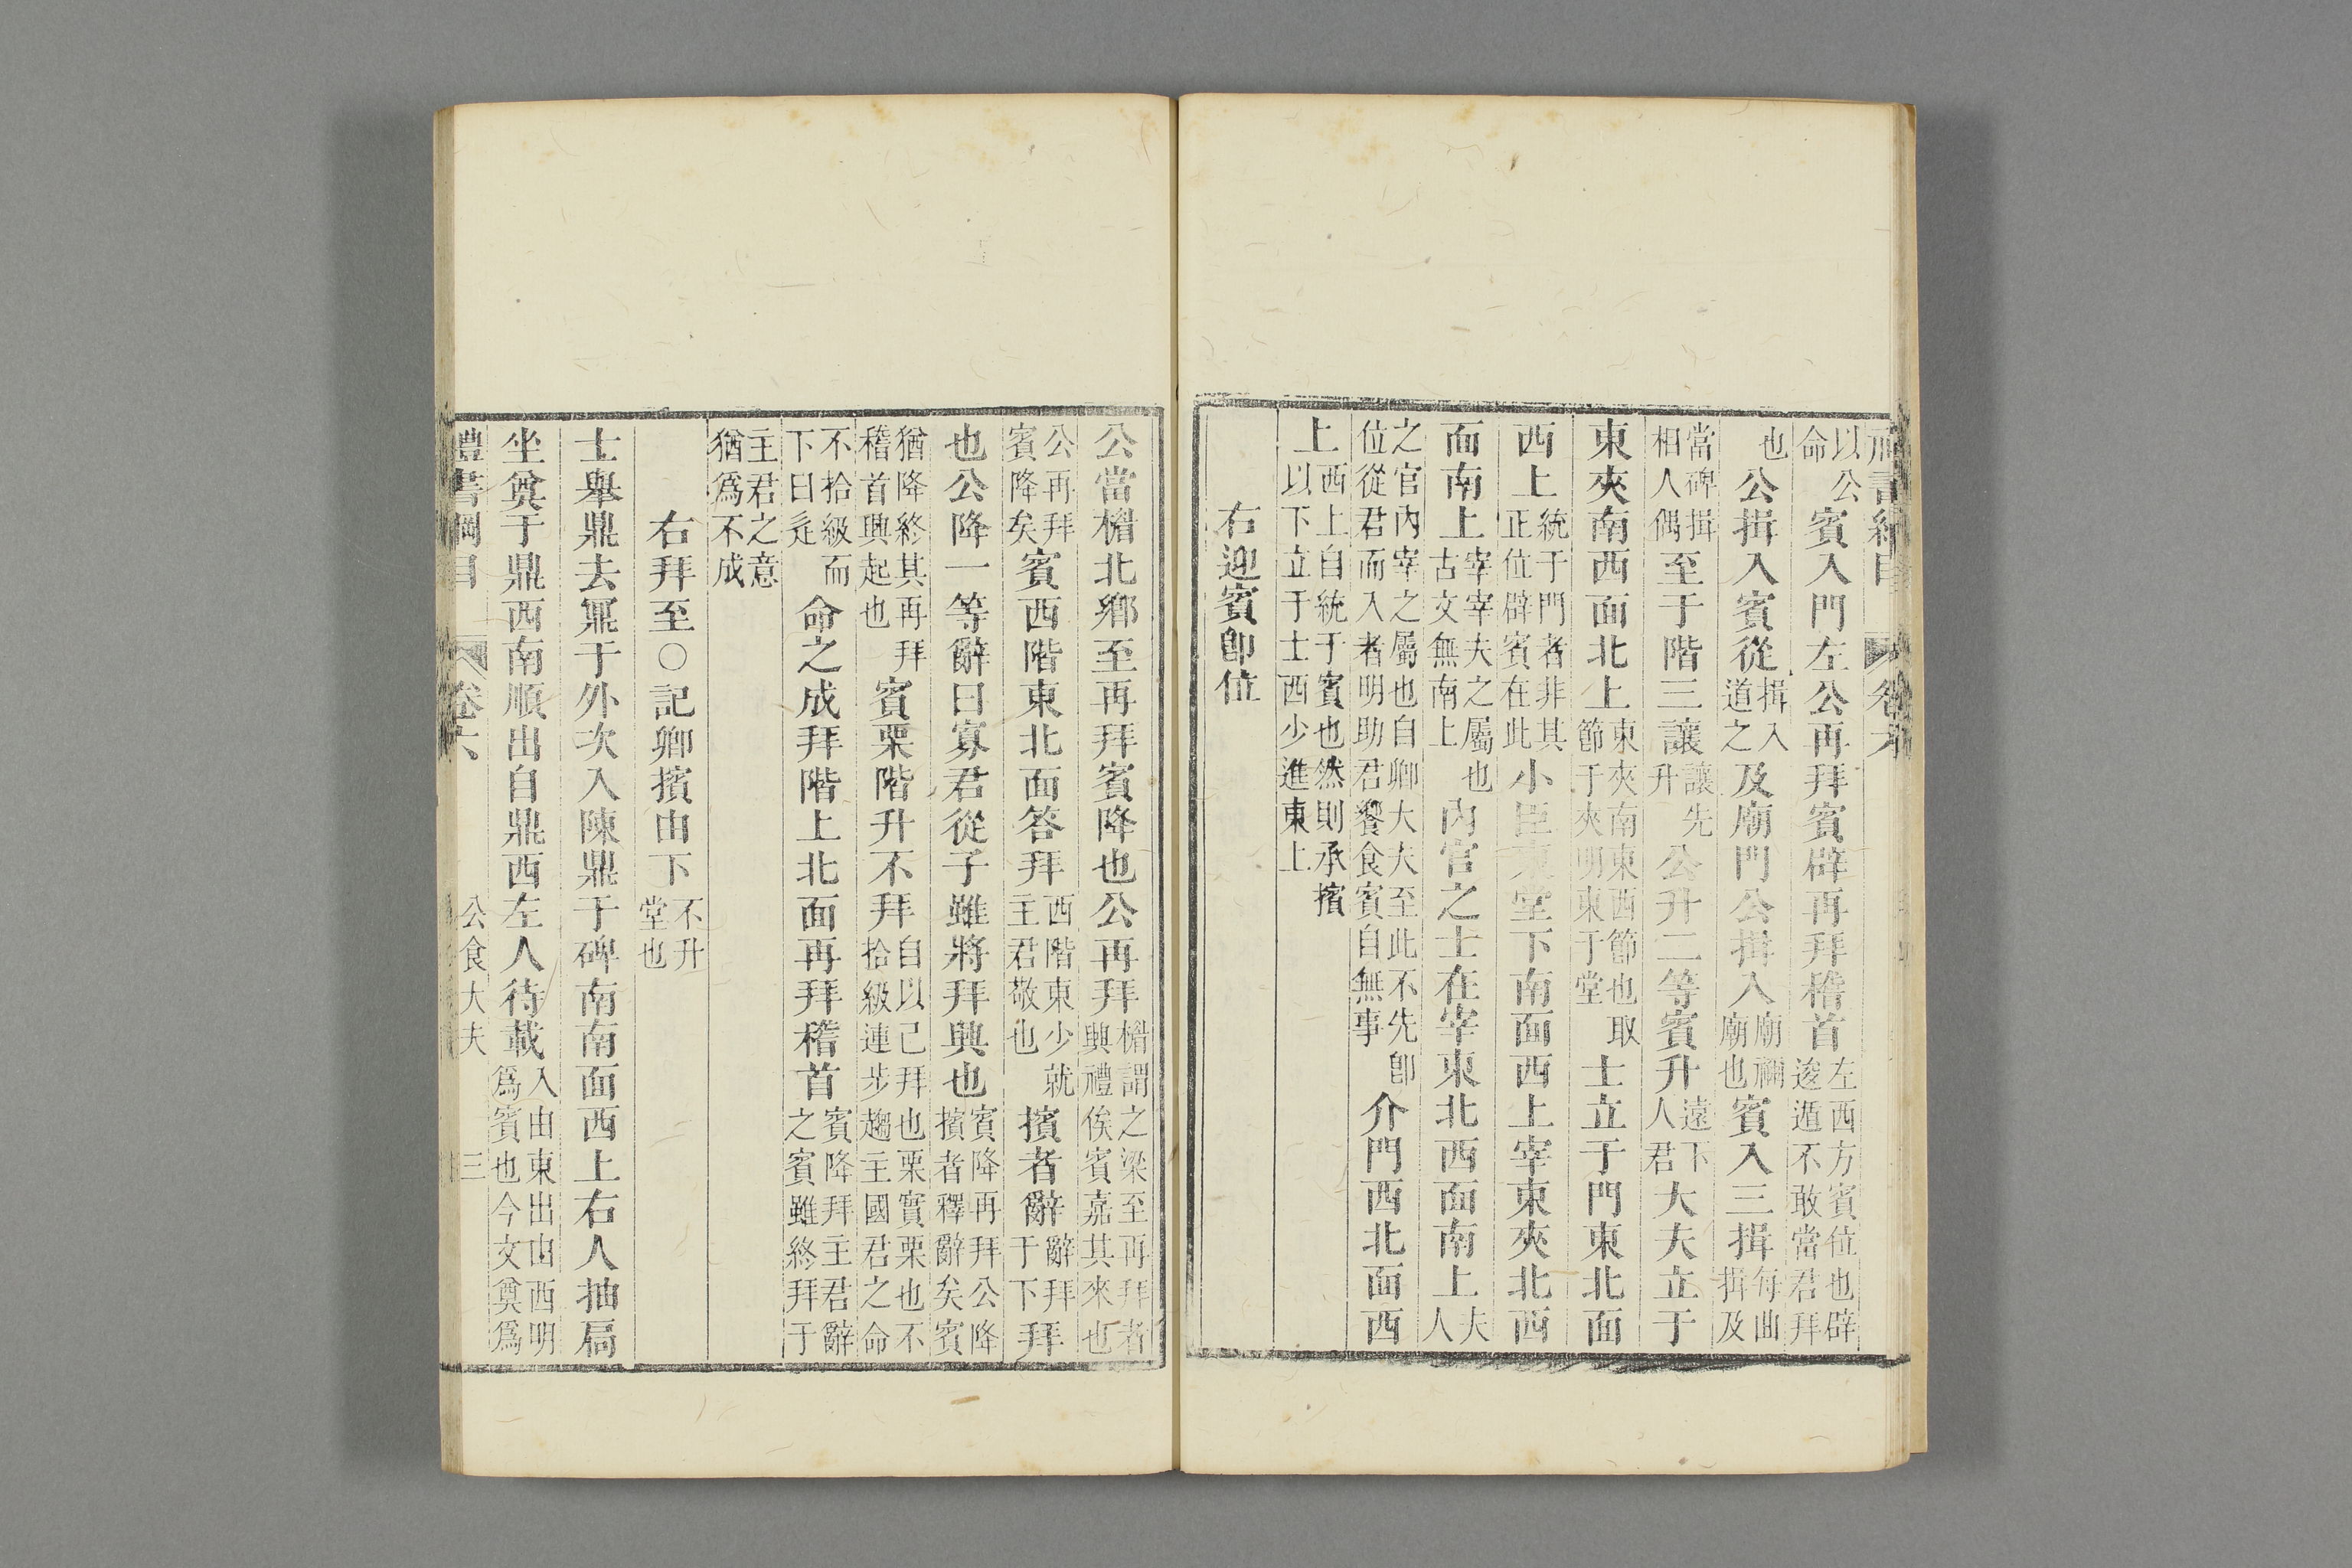 禮書綱目 卷六
以公命賓入門左公再拜賓辟再拜稽首左西方賓位也辟逡遁不敢當君拜
也公揖入賓從揖入道之及廟門公揖入廟禰廟也賓入三揖每曲揖及
當碑揖相人偶至于階三讓讓先升公升二等賓升遠下人君大夫立于
東夾南西面北上東夾南東西節也取節于夾明東于堂士立于門東北面
西上統于門者非其正位辟賓在此小臣東堂下南面西上宰東夾北西
面南上宰宰夫之屬也古文無南上內官之士在宰東北西面南上夫人
之官內宰之屬也自卿大夫至此不先卽位從君而入者明助君饗食賓自無事介門西北面西
上西上自統于賓也然則承擯以下立于士西少進東上
右迎賓卽位
公當楣北鄉至再拜賓降也公再拜楣謂之梁至再拜者興禮俟賓嘉其來也
公再拜賓降矣賓西階東北面答拜西階東少就主君敬也擯者辭辭拜于下拜
也公降一等辭曰寡君從子雖將拜興也賓降再拜公降擯者釋辭矣賓
猶降終其再拜稽首興起也賓栗階升不拜自以己拜也栗實栗也不拾級連步趨主國君之命
不拾級而下曰辵命之成拜階上北面再拜稽首賓降拜主君辭之賓雖終拜于
主君之意猶爲不成
右拜至○記卿擯由下不升堂也
士舉鼎去鼏于外次入陳鼎于碑南南面西上右人抽扃
坐奠于鼎西南順出自鼎西左人待載入由東出由西明爲賓也今文奠爲
禮書綱目 卷六 公食大夫 三